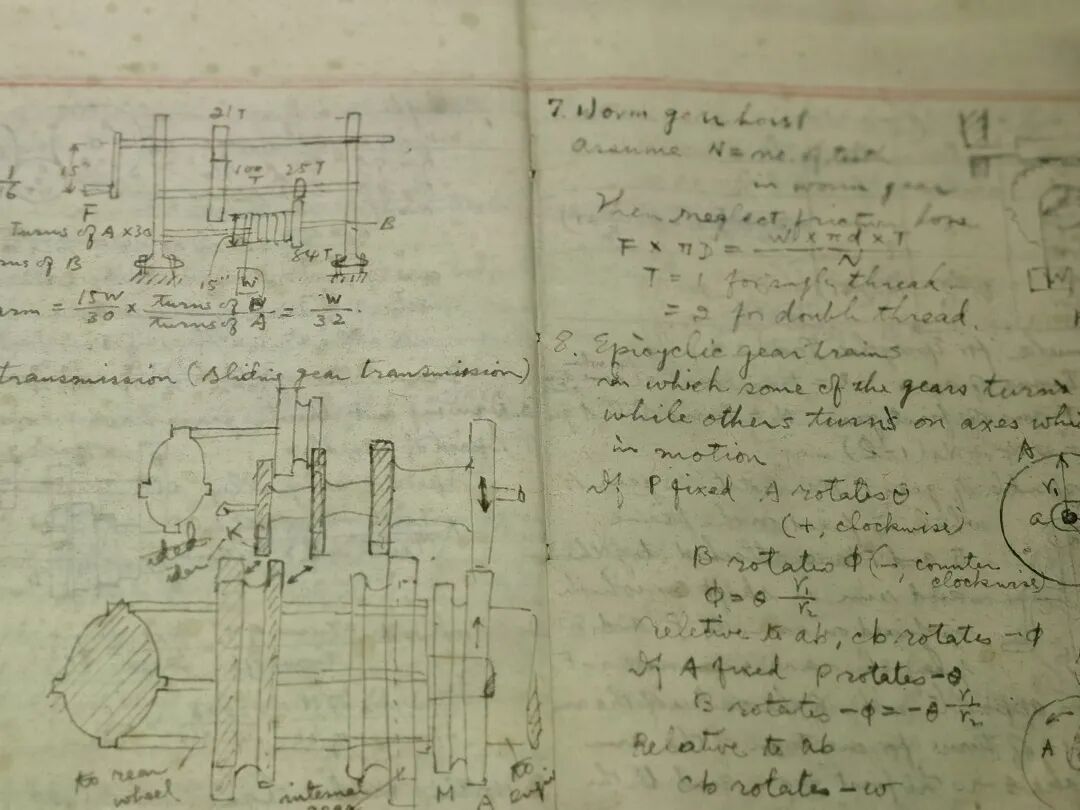 21T
15"
100 T
25T
1/6
F
B
Turns of A x 30
84T
rns of B
15"
W
arm = 15W/30 x turns of B/turns of A = W/32.
transmission (Sliding gear transmission)
K
to rear
wheel
internal
gear
M
A
to
7. Worm gear hoist
assume N = no. of teeth
in worm gear
Then neglect friction
F x πD = W x πd x T/N
T = 1 for single thread.
= 2 for double thread.
W
8. Epicyclic gear trains
in which some of the gears turns
while others turns on axes whi
in motion
If P fixed A rotates θ
(+, clockwise)
B rotates φ (-, counter
clockwise)
φ = θ r1/r2
reletive to ab, cb rotates -φ
If A fixed P rotates -θ
B rotates -φ = -θ r1/r2
Relative to ab
cb rotates -w
A
r1
a
A